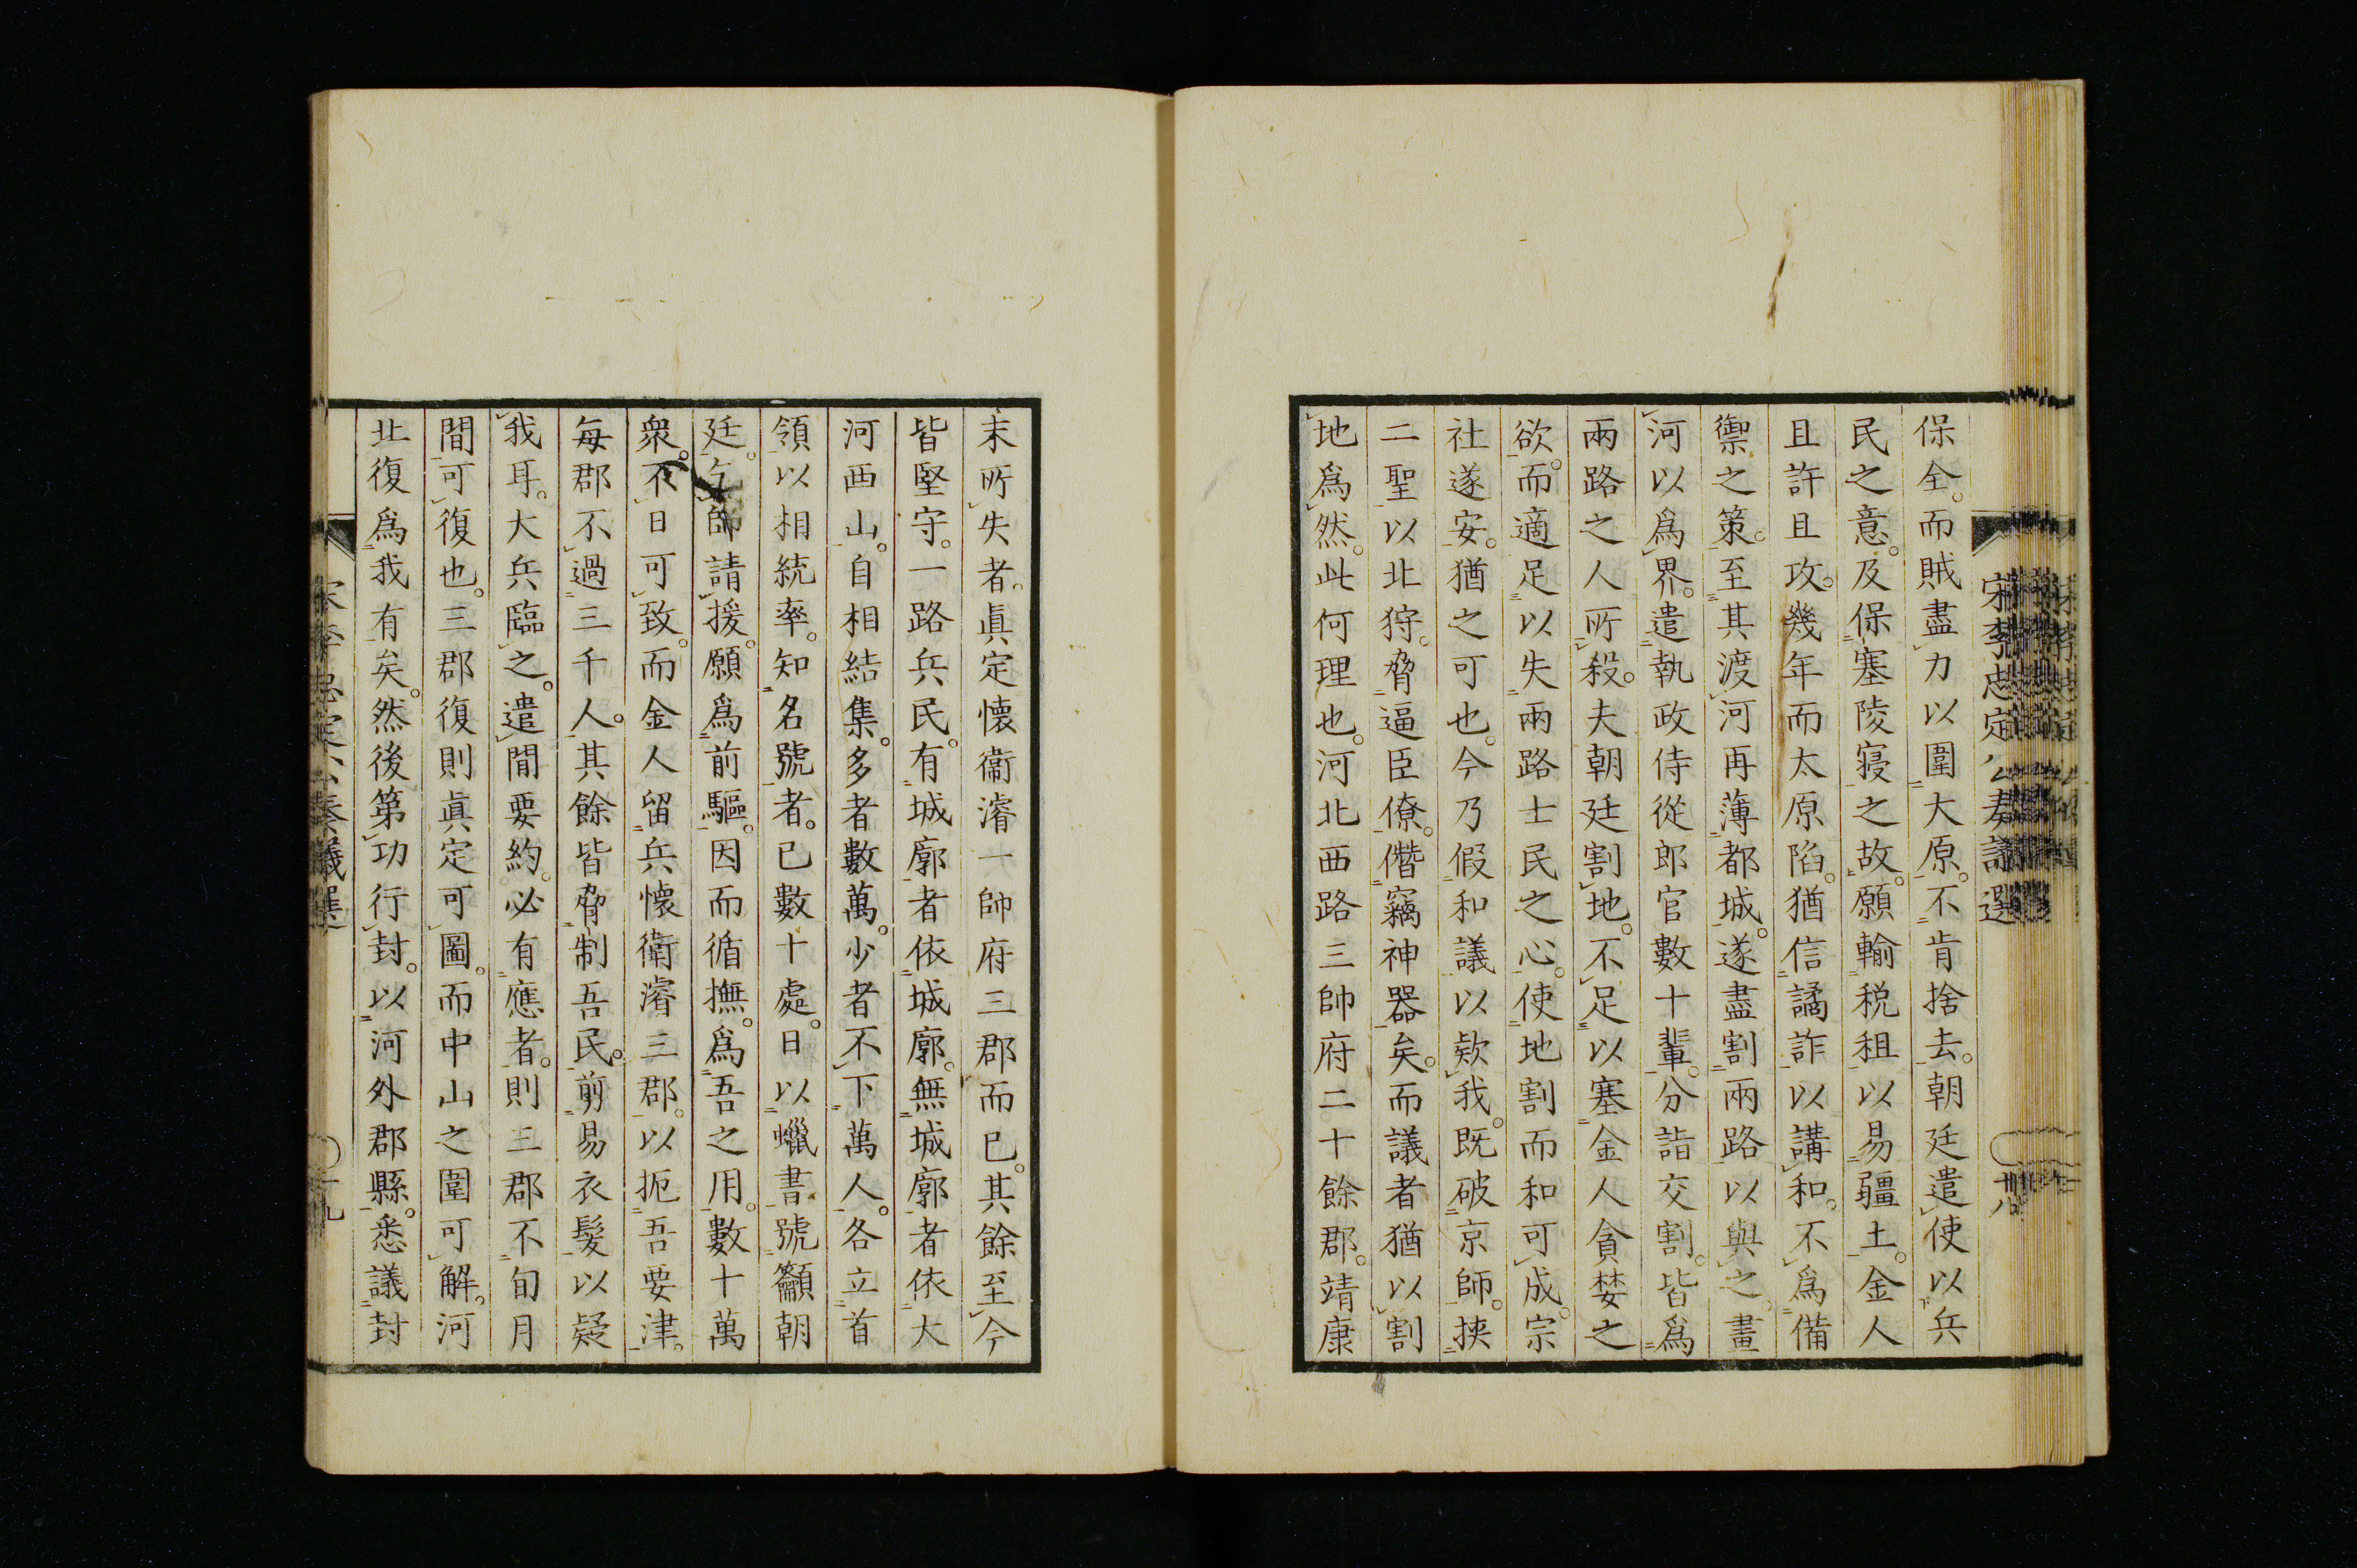 保全。而賊盡力以圍大原。不肯捨去。朝廷遣使以兵
民之意。及保塞陵寢之故。願輸税租以易疆土。金人
且許且攻。幾年而太原陷。猶信譎詐以講和。不爲備
禦之策。至其渡河再薄都城。遂盡割兩路以與之。畫
河以爲界。遣執政侍從郎官數十輩。分詣交割。皆爲
兩路之人所殺。夫朝廷割地。不足以塞金人貪婪之
欲。而適足以失兩路士民之心。使地割而和可成。宗
社遂安。猶之可也。今乃假和議以欵我。既破京師。挾
二聖以北狩。脅逼臣僚。僭竊神器矣。而議者猶以割
地爲然。此何理也。河北西路三帥府二十餘郡。靖康
末所失者。眞定懷衞濬一帥府三郡而已。其餘至今
皆堅守。一路兵民。有城廓者依城廓。無城廓者依大
河西山。自相結集。多者數萬。少者不下萬人。各立首
領以相統率。知名號者。已數十處。日以蠟書號籲朝
廷。乞師請援。願爲前驅。因而循撫。爲吾之用。數十萬
衆。不日可致。而金人留兵懷衛濬三郡。以扼吾要津。
每郡不過三千人。其餘皆脅制吾民。剪易衣髮以疑
我耳。大兵臨之。遣間要約。必有應者。則三郡不旬月
間可復也。三郡復則眞定可圖。而中山之圍可解。河
北復爲我有矣。然後第功行封。以河外郡縣。悉議封
宋李忠定公奏議選